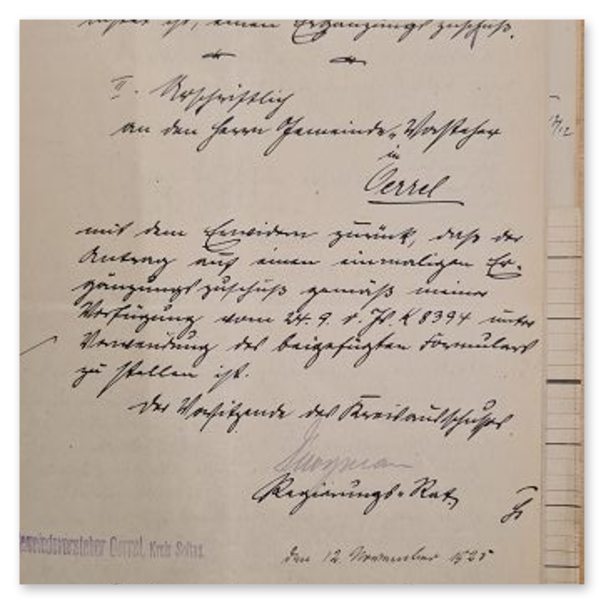 ist, einen Ergänzungszuschuß.
II. Urschriftlich
an den Herrn Gemeinde-Vorsteher
in
Oerrel
mit dem Erwidern zurück, daß der
Antrag auf einen einmaligen Er-
gänzungszuschuß gemäß meiner
Verfügung vom 24.9. d. Js. K 8394 unter
Verwendung des beigefügten Formulars
zu stellen ist.
Der Vorsitzende des Kreisausschusses
Regierungs-Rat
Gemeindevorsteher Oerrel, Kreis Soltau
den 12. November 1925